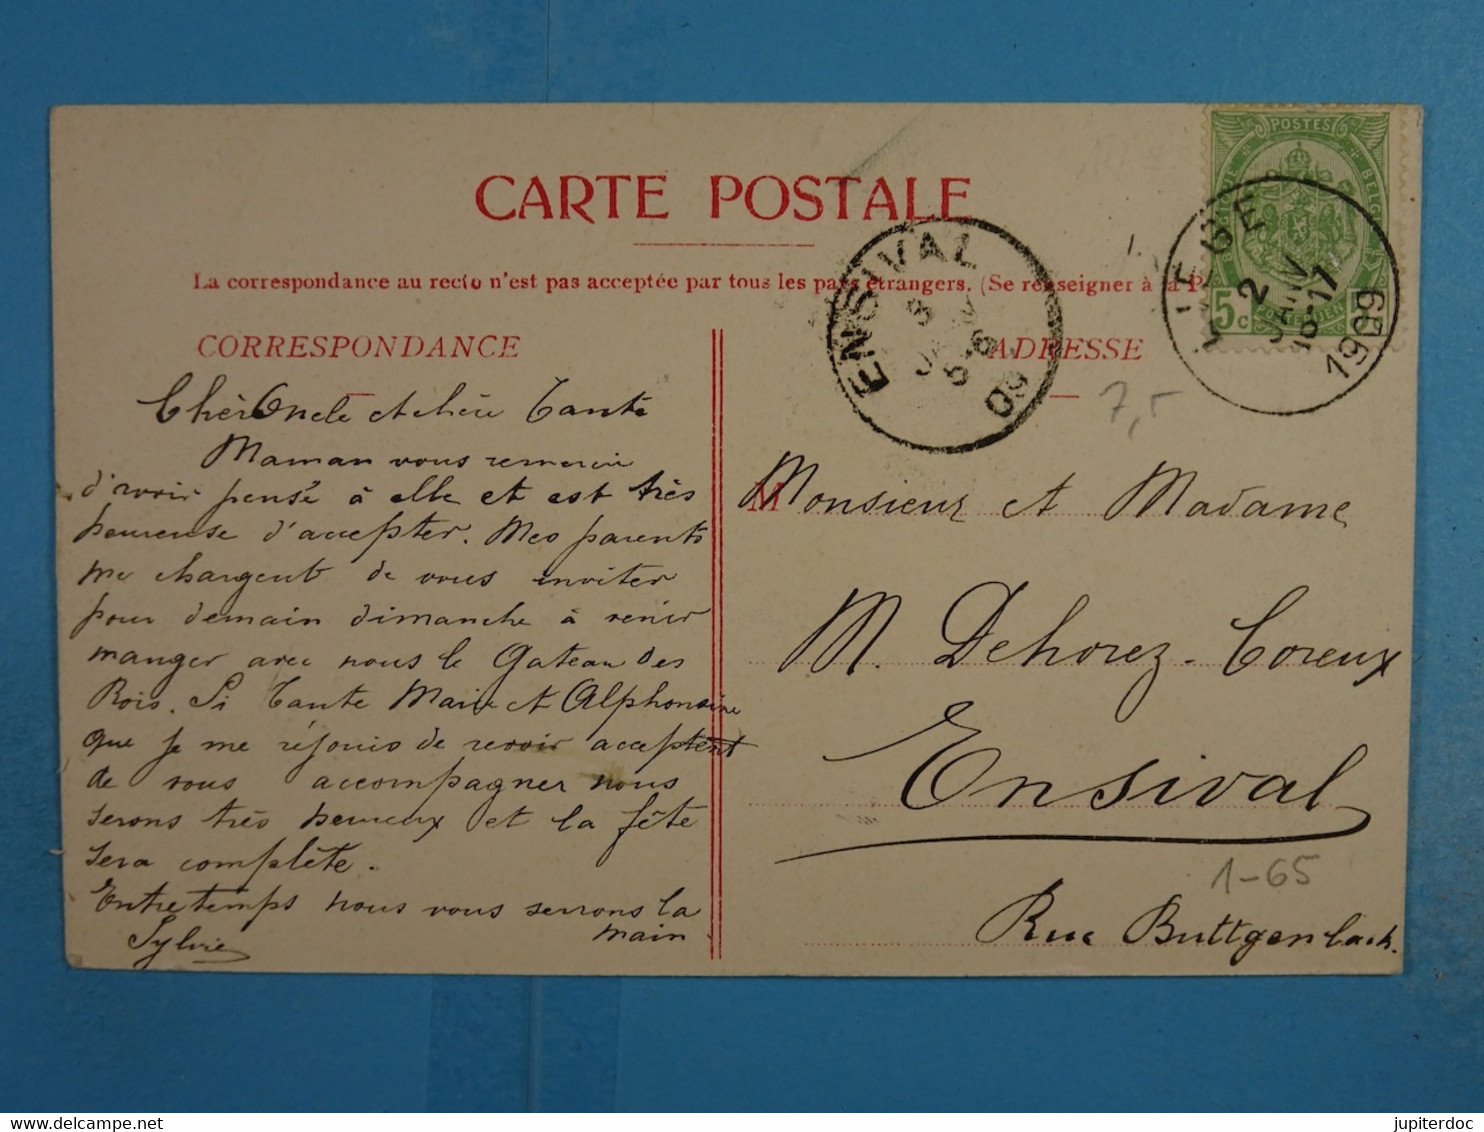 CARTE POSTALE
La correspondance au recto n'est pas acceptée par tous les pays étrangers. (Se renseigner à la P
CORRESPONDANCE
Chèr Oncle et chère Tante
Maman vous remercie
d'avoir pensé à elle et est très
heureuse d'accepter. Mes parents
me chargent de vous inviter
pour demain dimanche à venir
manger avec nous le Gateau des
Rois. Si Tante Marie et Alphonsine
que je me réjouis de revoir acceptent
de vous accompagner nous
serons très heureux et la fête
sera complète.
Entretemps nous vous serrons la
main.
Sylvie
ADRESSE
7,5
M
Monsieur et Madame
M. Dehorez-Coreux
Ensival
1-65
Rue Buttgenbach.
ENSIVAL
3
JANV
5-6
09
LIEGE
2
JANV
16-17
1909
POSTES
BELGIQUE
BELGIE
5 c
5
jupiterdoc
delcampe.net